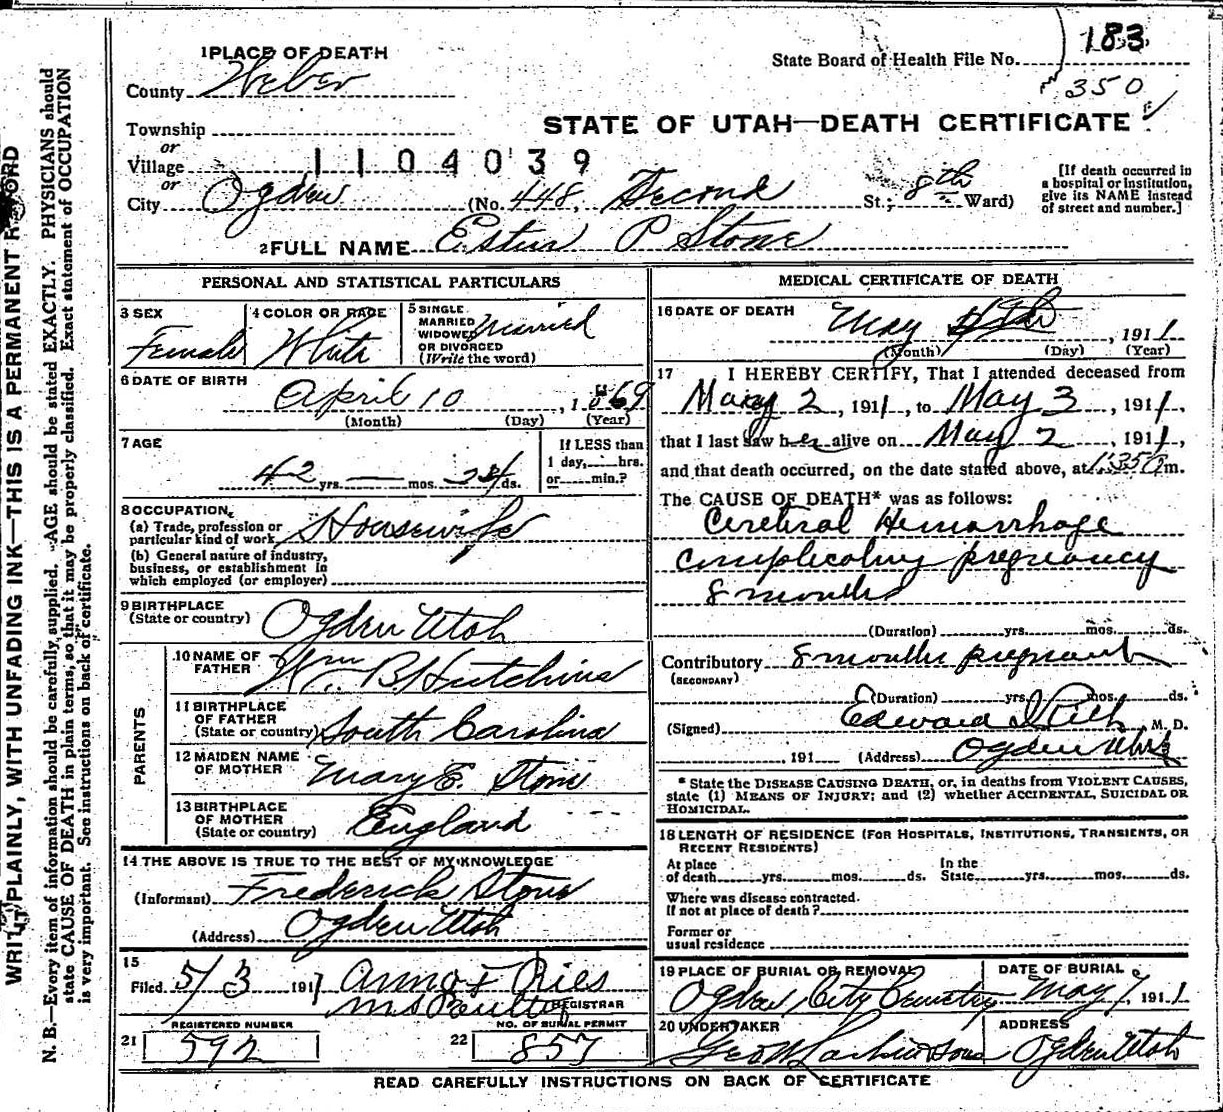 183
State Board of Health File No.
350
1 PLACE OF DEATH
County Weber
STATE OF UTAH—DEATH CERTIFICATE
Township
or
Village 1104039
or
City Ogden (No. 448, Second St.; 8th Ward)
[If death occurred in
a hospital or institution,
give its NAME instead
of street and number.]
2 FULL NAME P Stone
PERSONAL AND STATISTICAL PARTICULARS
3 SEX
Female
4 COLOR OR RACE
White
5 SINGLE
MARRIED
WIDOWED
OR DIVORCED
(Write the word)
Married
6 DATE OF BIRTH
April 10, 1869
(Month) (Day) (Year)
7 AGE
42 yrs. — mos. ds.
If LESS than
1 day, hrs.
or min.?
8 OCCUPATION
(a) Trade, profession or
particular kind of work Housewife
(b) General nature of industry,
business, or establishment in
which employed (or employer)
9 BIRTHPLACE
(State or country) Ogden Utah
PARENTS
10 NAME OF
FATHER Wm B. Hutchins
11 BIRTHPLACE
OF FATHER
(State or country) South Carolina
12 MAIDEN NAME
OF MOTHER Mary E. Stone
13 BIRTHPLACE
OF MOTHER
(State or country) England
14 THE ABOVE IS TRUE TO THE BEST OF MY KNOWLEDGE
(Informant) Frederick Stone
(Address) Ogden Utah
15
Filed 5/3 1911 Anna F Ries
REGISTRAR
REGISTERED NUMBER
21 592
NO. OF BURIAL PERMIT
22 857
MEDICAL CERTIFICATE OF DEATH
16 DATE OF DEATH
May, 1911
(Month) (Day) (Year)
17 I HEREBY CERTIFY, That I attended deceased from
May 2, 1911, to May 3, 1911,
that I last saw her alive on May 2, 1911,
and that death occurred, on the date stated above, at m.
The CAUSE OF DEATH* was as follows:
Cerebral Hemorrhage
complicating pregnancy
8 months
(Duration) yrs. mos. ds.
Contributory 8 months pregnant
(SECONDARY)
(Duration) yrs. mos. ds.
(Signed) Edward I Rich, M. D.
, 191 (Address) Ogden Utah
* State the DISEASE CAUSING DEATH, or, in deaths from VIOLENT CAUSES,
state (1) MEANS OF INJURY; and (2) whether ACCIDENTAL, SUICIDAL OR
HOMICIDAL.
18 LENGTH OF RESIDENCE (FOR HOSPITALS, INSTITUTIONS, TRANSIENTS, OR
RECENT RESIDENTS)
At place
of death yrs. mos. ds.
In the
State yrs. mos. ds.
Where was disease contracted.
If not at place of death?
Former or
usual residence
19 PLACE OF BURIAL OR REMOVAL
Ogden City Cemetry
DATE OF BURIAL
May 7, 1911
20 UNDERTAKER
Geo W Larkin & Sons
ADDRESS
Ogden Utah
READ CAREFULLY INSTRUCTIONS ON BACK OF CERTIFICATE
WRITE PLAINLY, WITH UNFADING INK—THIS IS A PERMANENT RECORD
N. B.—Every item of information should be carefully supplied. AGE should be stated EXACTLY. PHYSICIANS should
state CAUSE OF DEATH in plain terms, so that it may be properly classified. Exact statement of OCCUPATION
is very important. See instructions on back of certificate.